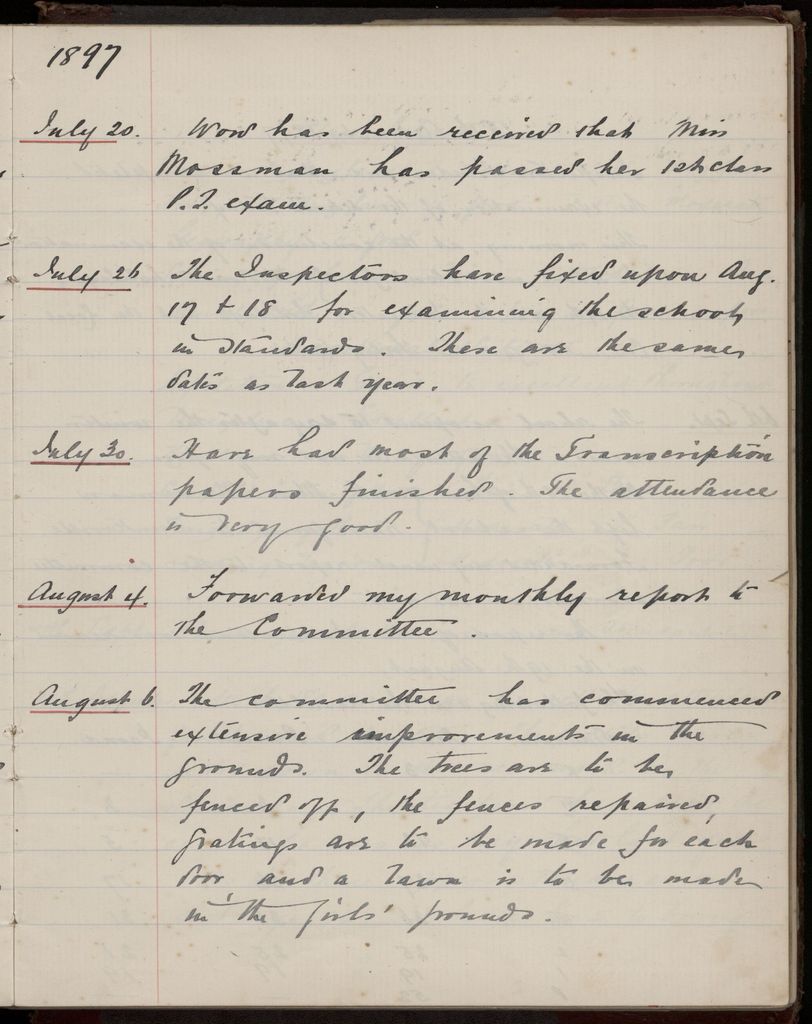 1897
July 20. Word has been received that Miss
Mossman has passed her 1st class
P.T. exam.
July 26 The Inspectors have fixed upon Aug.
17 & 18 for examining the school
in standards. These are the same
dates as last year.
July 30. Have had most of the Transcription
papers finished. The attendance
is very good.
August 4. Forwarded my monthly report to
the Committee.
August 6. The committee has commenced
extensive improvements in the
grounds. The trees are to be
fenced off, the fences repaired,
gratings are to be made for each
door and a lawn is to be made
in the girls' grounds.